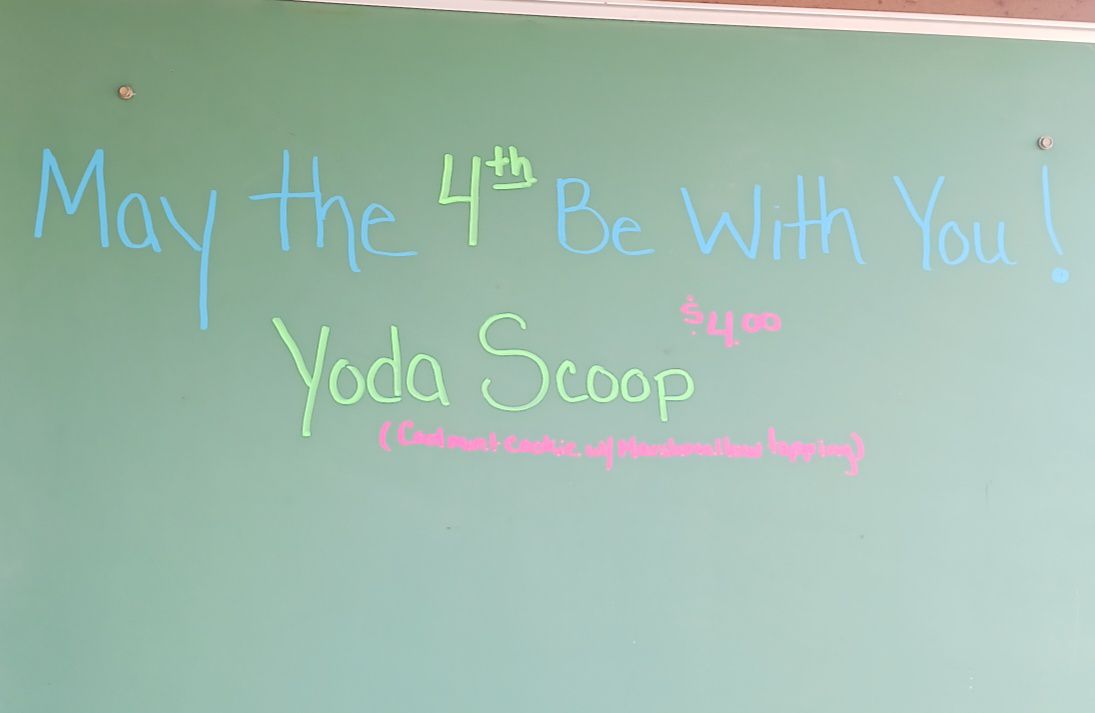 May the 4th Be With You!
$4.00
Yoda Scoop
(Coolmint Cookie w/ Marshmallow topping)